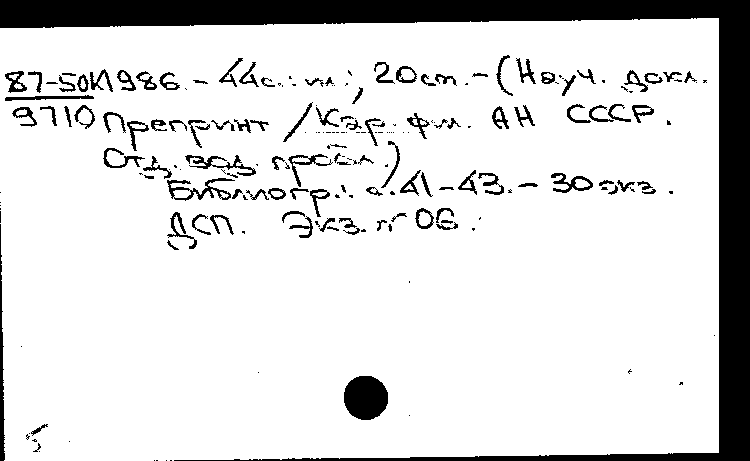 87-50К 1986. - 44с.: ил.; 20см. - (Науч. докл.
9710 Препринт / Кар. фил. АН СССР.
Отд. вод. пробл.)
Библиогр.: с. 41-43. - 30 экз.
ДСП. Экз. № 06.
5